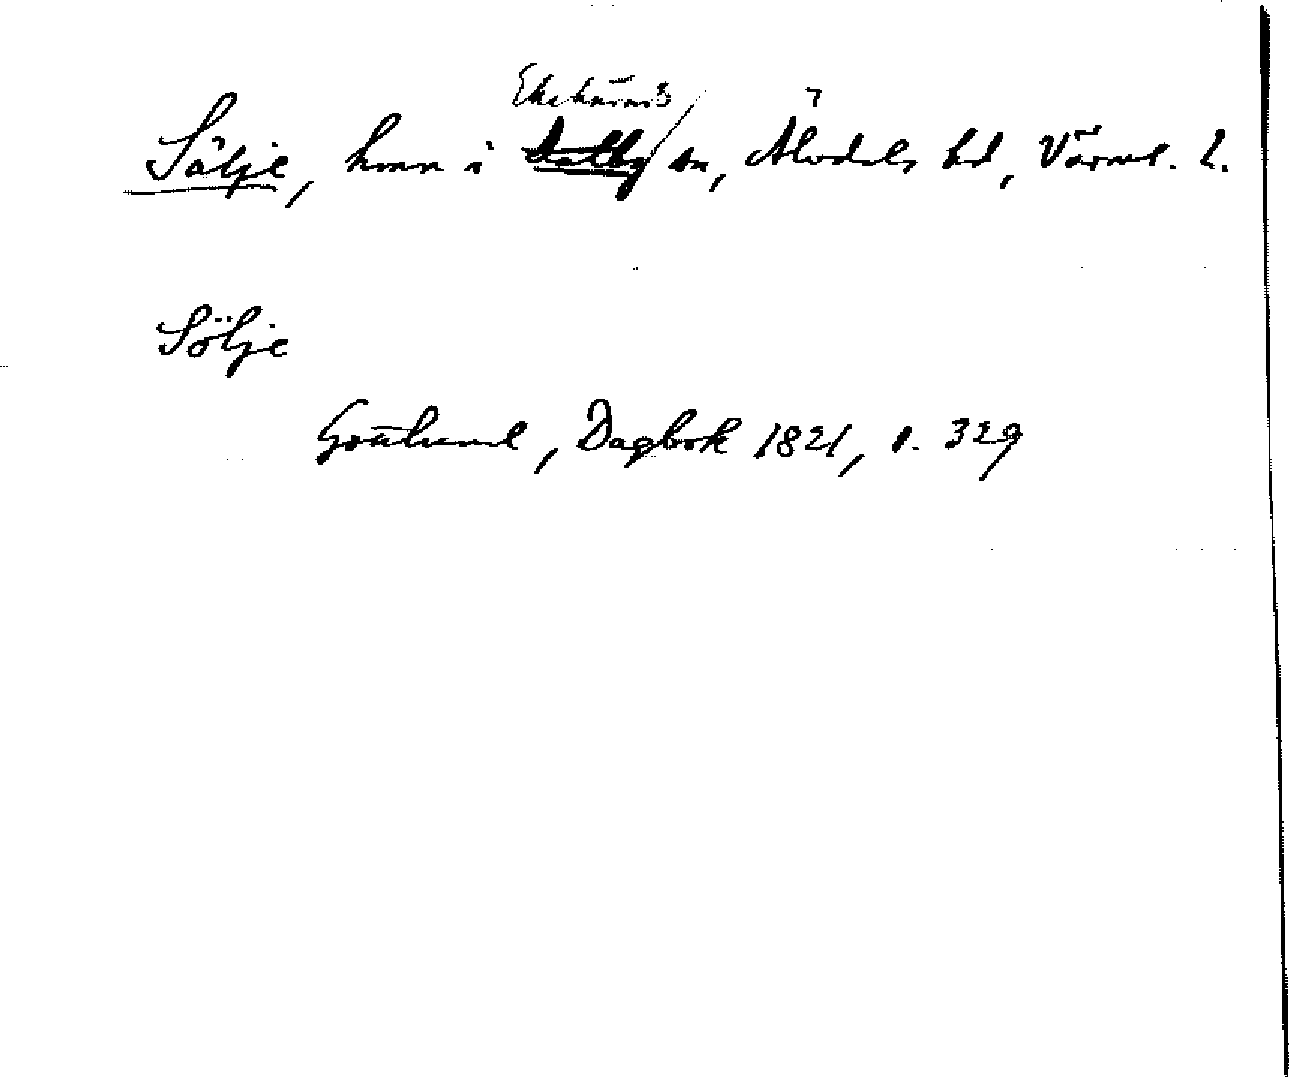 Ekshärads
Sälje, hmn i Dalby sn, Älvdals hd, Värml. l.
Sölje
Gottlund, Dagbok 1821, s. 329